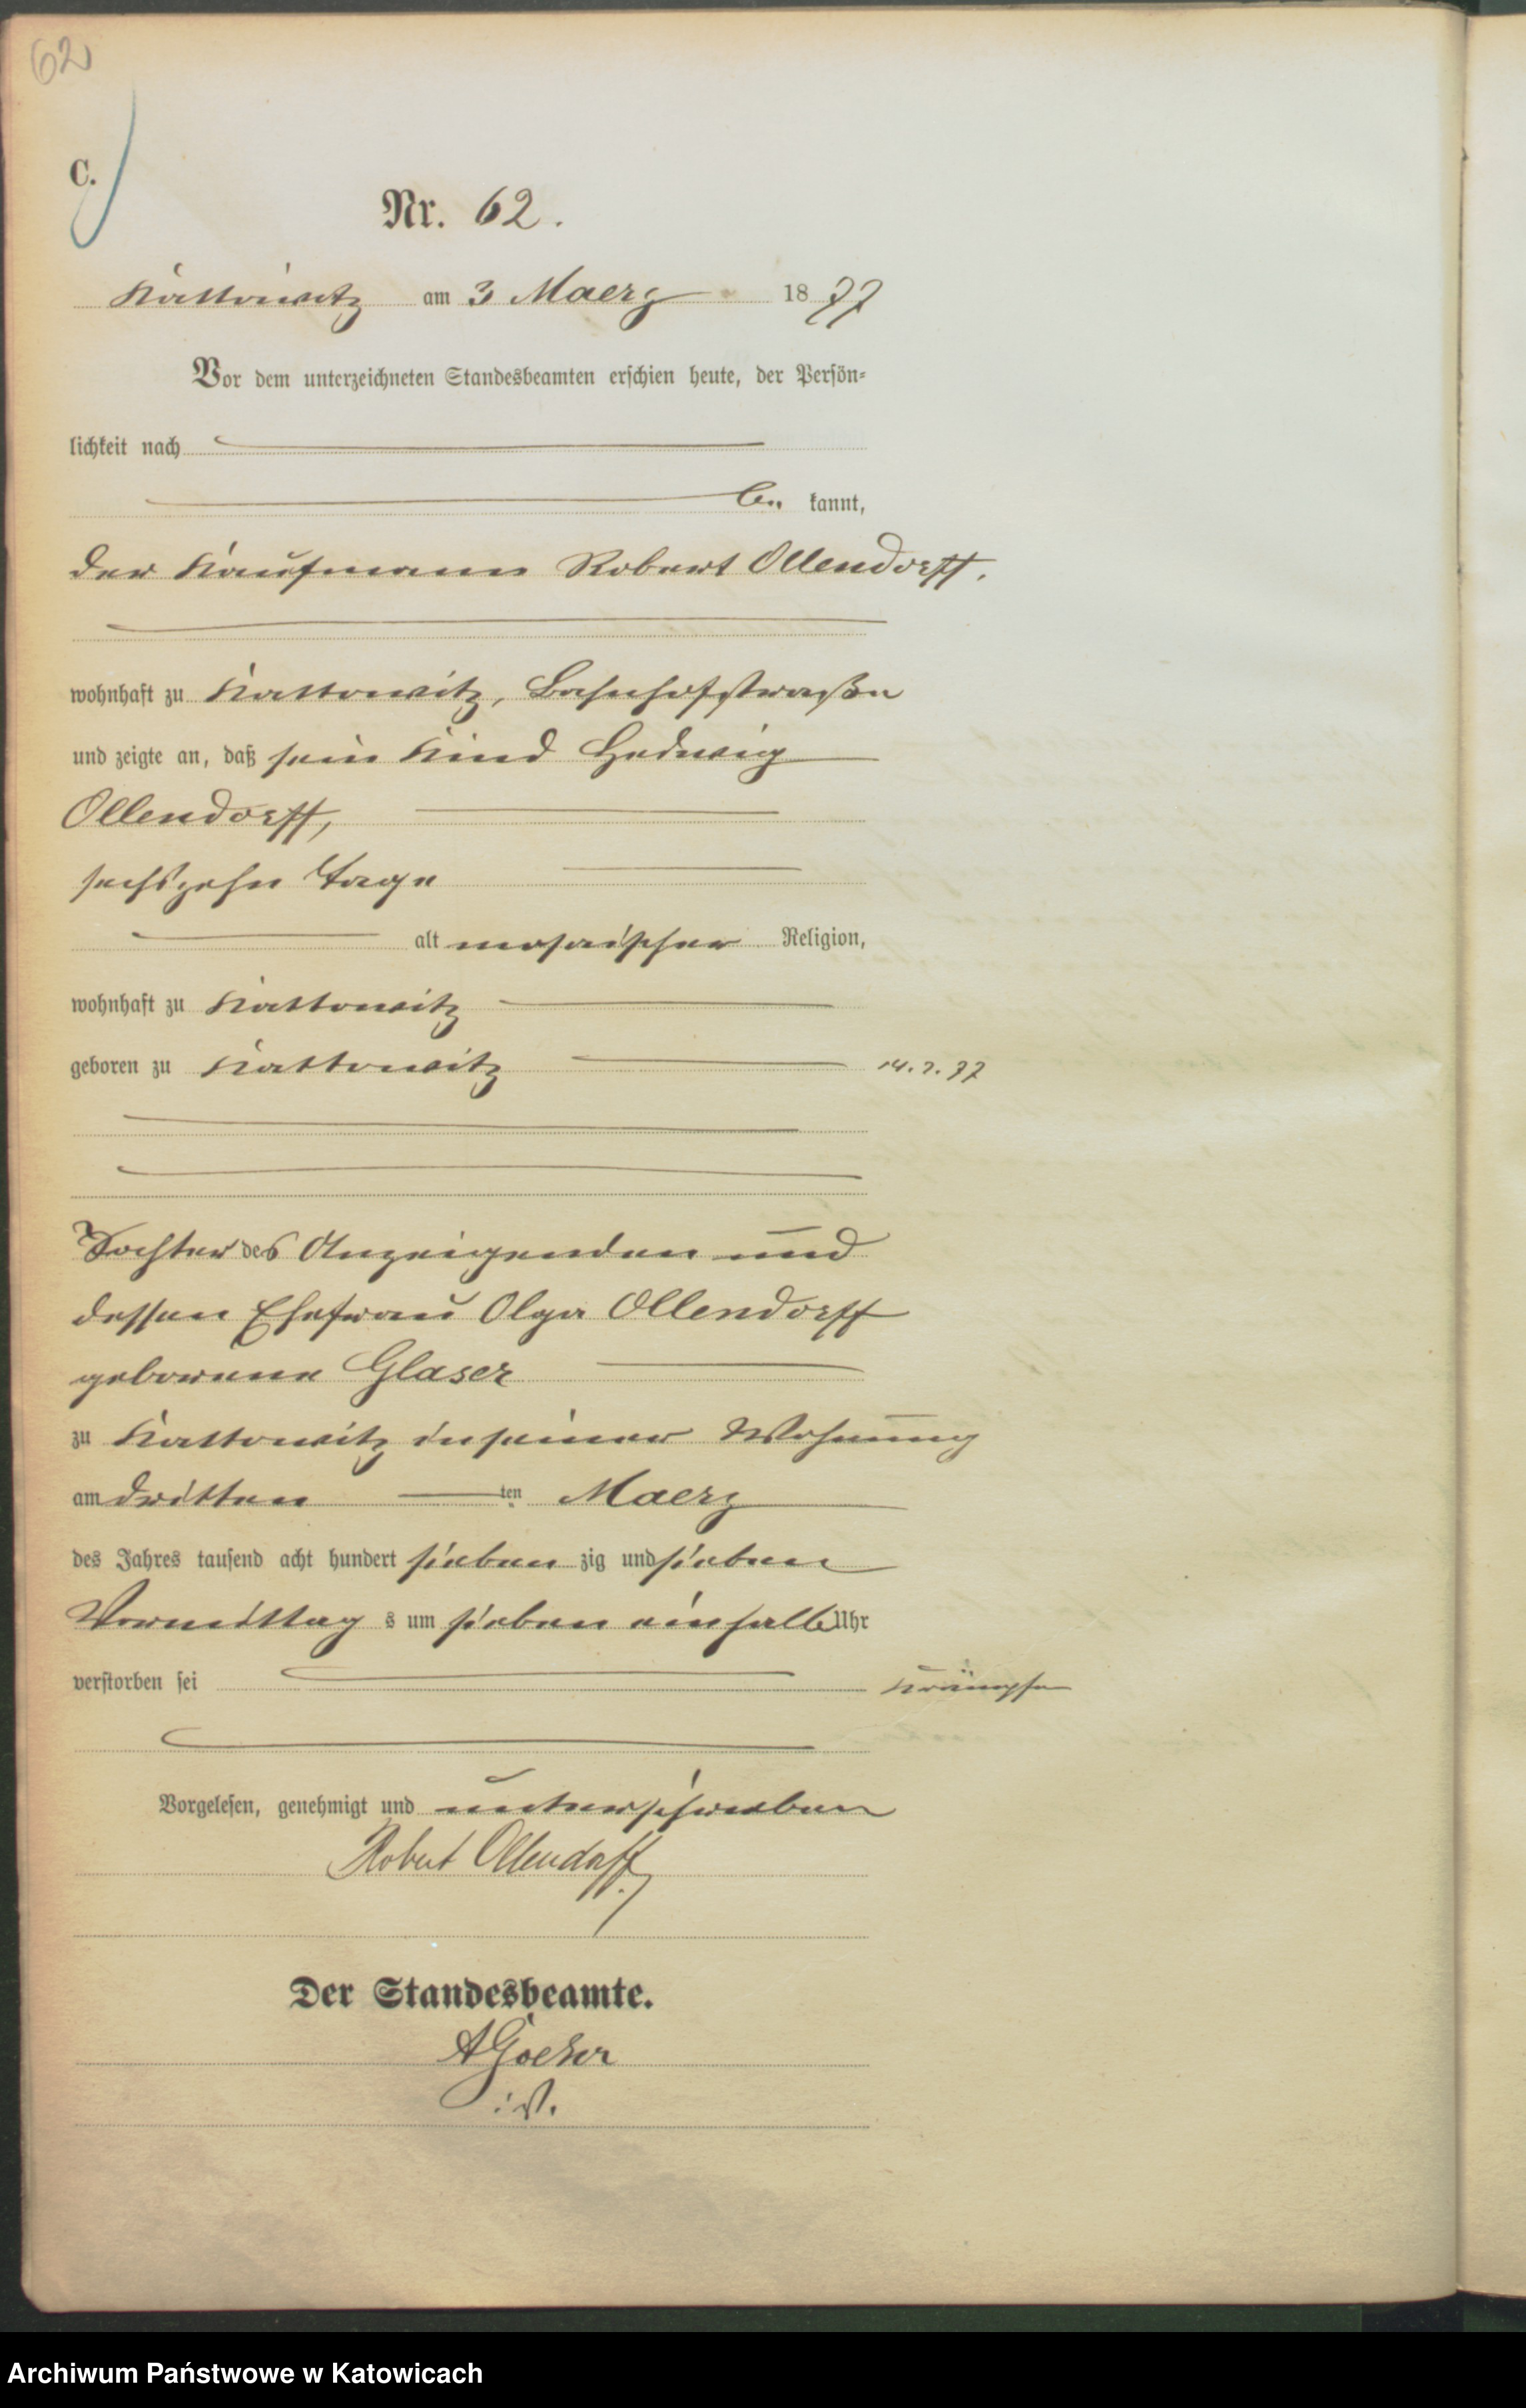 62
C.
Nr. 62.
Kattowitz am 3 Maerz 1877
Vor dem unterzeichneten Standesbeamten erschien heute, der Persön-
lichkeit nach
be kannt,
der Kaufmann Robert Ollendorff.
wohnhaft zu Kattowitz, Bahnhofstraße
und zeigte an, daß sein Kind Hedwig
Ollendorff,
sechszehn Tage
alt mosaischer Religion,
wohnhaft zu Kattowitz
geboren zu Kattowitz 14.2.77
Tochter des Anzeigenden und
dessen Ehefrau Olga Ollendorff
geborene Glaser
zu Kattowitz in seiner Wohnung
am dritten ten Maerz
des Jahres tausend acht hundert sieben zig und sieben
Vormittag s um sieben einhalb Uhr
verstorben sei Krämpfe
Vorgelesen, genehmigt und unterschrieben
Robert Ollendorff
Der Standesbeamte.
i.V.
Archiwum Państwowe w Katowicach